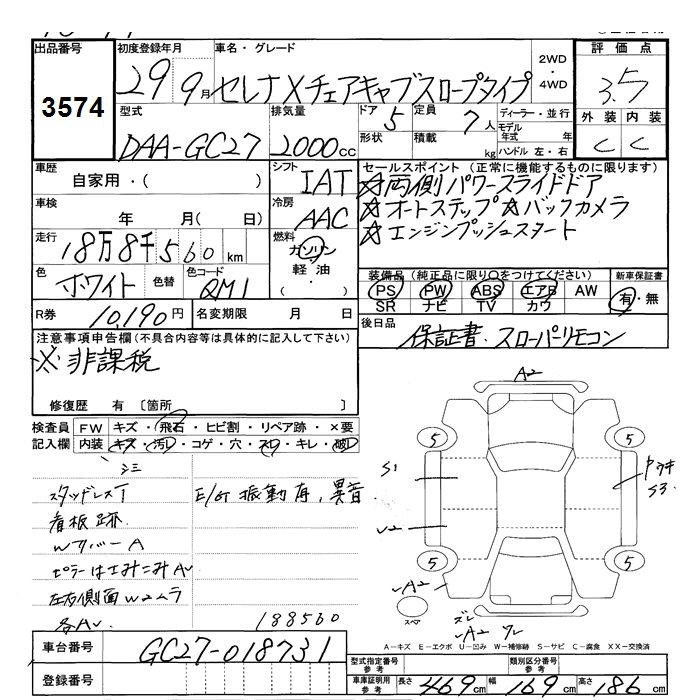 出品番号 初度登録年月 車名・グレード 2WD ・ 4WD 評価点
3574 29 9月 セレナ Xチェアキャブスロープタイプ 3.5
型式 排気量 ドア 5 定員 7人 ディーラー・並行 外装 内装
DAA-GC27 2000cc 形状 積載 kg モデル年式 年 ハンドル 左・右 C C
車歴 自家用・( ) シフト IAT セールスポイント (正常に機能するものに限ります)
☆両側パワースライドドア
車検 年 月( 日) 冷房 AAC ☆オートステップ ☆バックカメラ
走行 18万8千560km 燃料 ガソリン・軽油・( ) ☆エンジンプッシュスタート
色 ホワイト 色替 色コード QM1 装備品 (純正品に限り○をつけてください) 新車保証書
PS PW ABS エアB AW 有・無
SR ナビ TV カワ
R券 10,190円 名変期限 月 日 後日品
保証書・スローパーリモコン
注意事項申告欄(不具合内容等は具体的に記入して下さい)
※非課税
修復歴 有 〔箇所 〕
検査員記入欄 FW キズ・飛石・ヒビ割・リペア跡・×要
内装 キズ・汚レ・コゲ・穴・スレ・キレ・破レ
シミ
スタッドレスT E/G 振動有、異音
看板跡
Wカバー A
ピラーはエみニみ A
左右側面 W2ムラ
各A 188560
A2
5 5
S1
S3
5 5
A2
スペア
ズレ
A2
A－キズ E－エクボ U－凹み W－補修跡 S－サビ C－腐食 XX－交換済
車台番号 GC27-018731
登録番号
型式指定番号 参考 類別区分番号 参考
車庫証明用 参考 長さ 469cm 幅 169cm 高さ 186cm